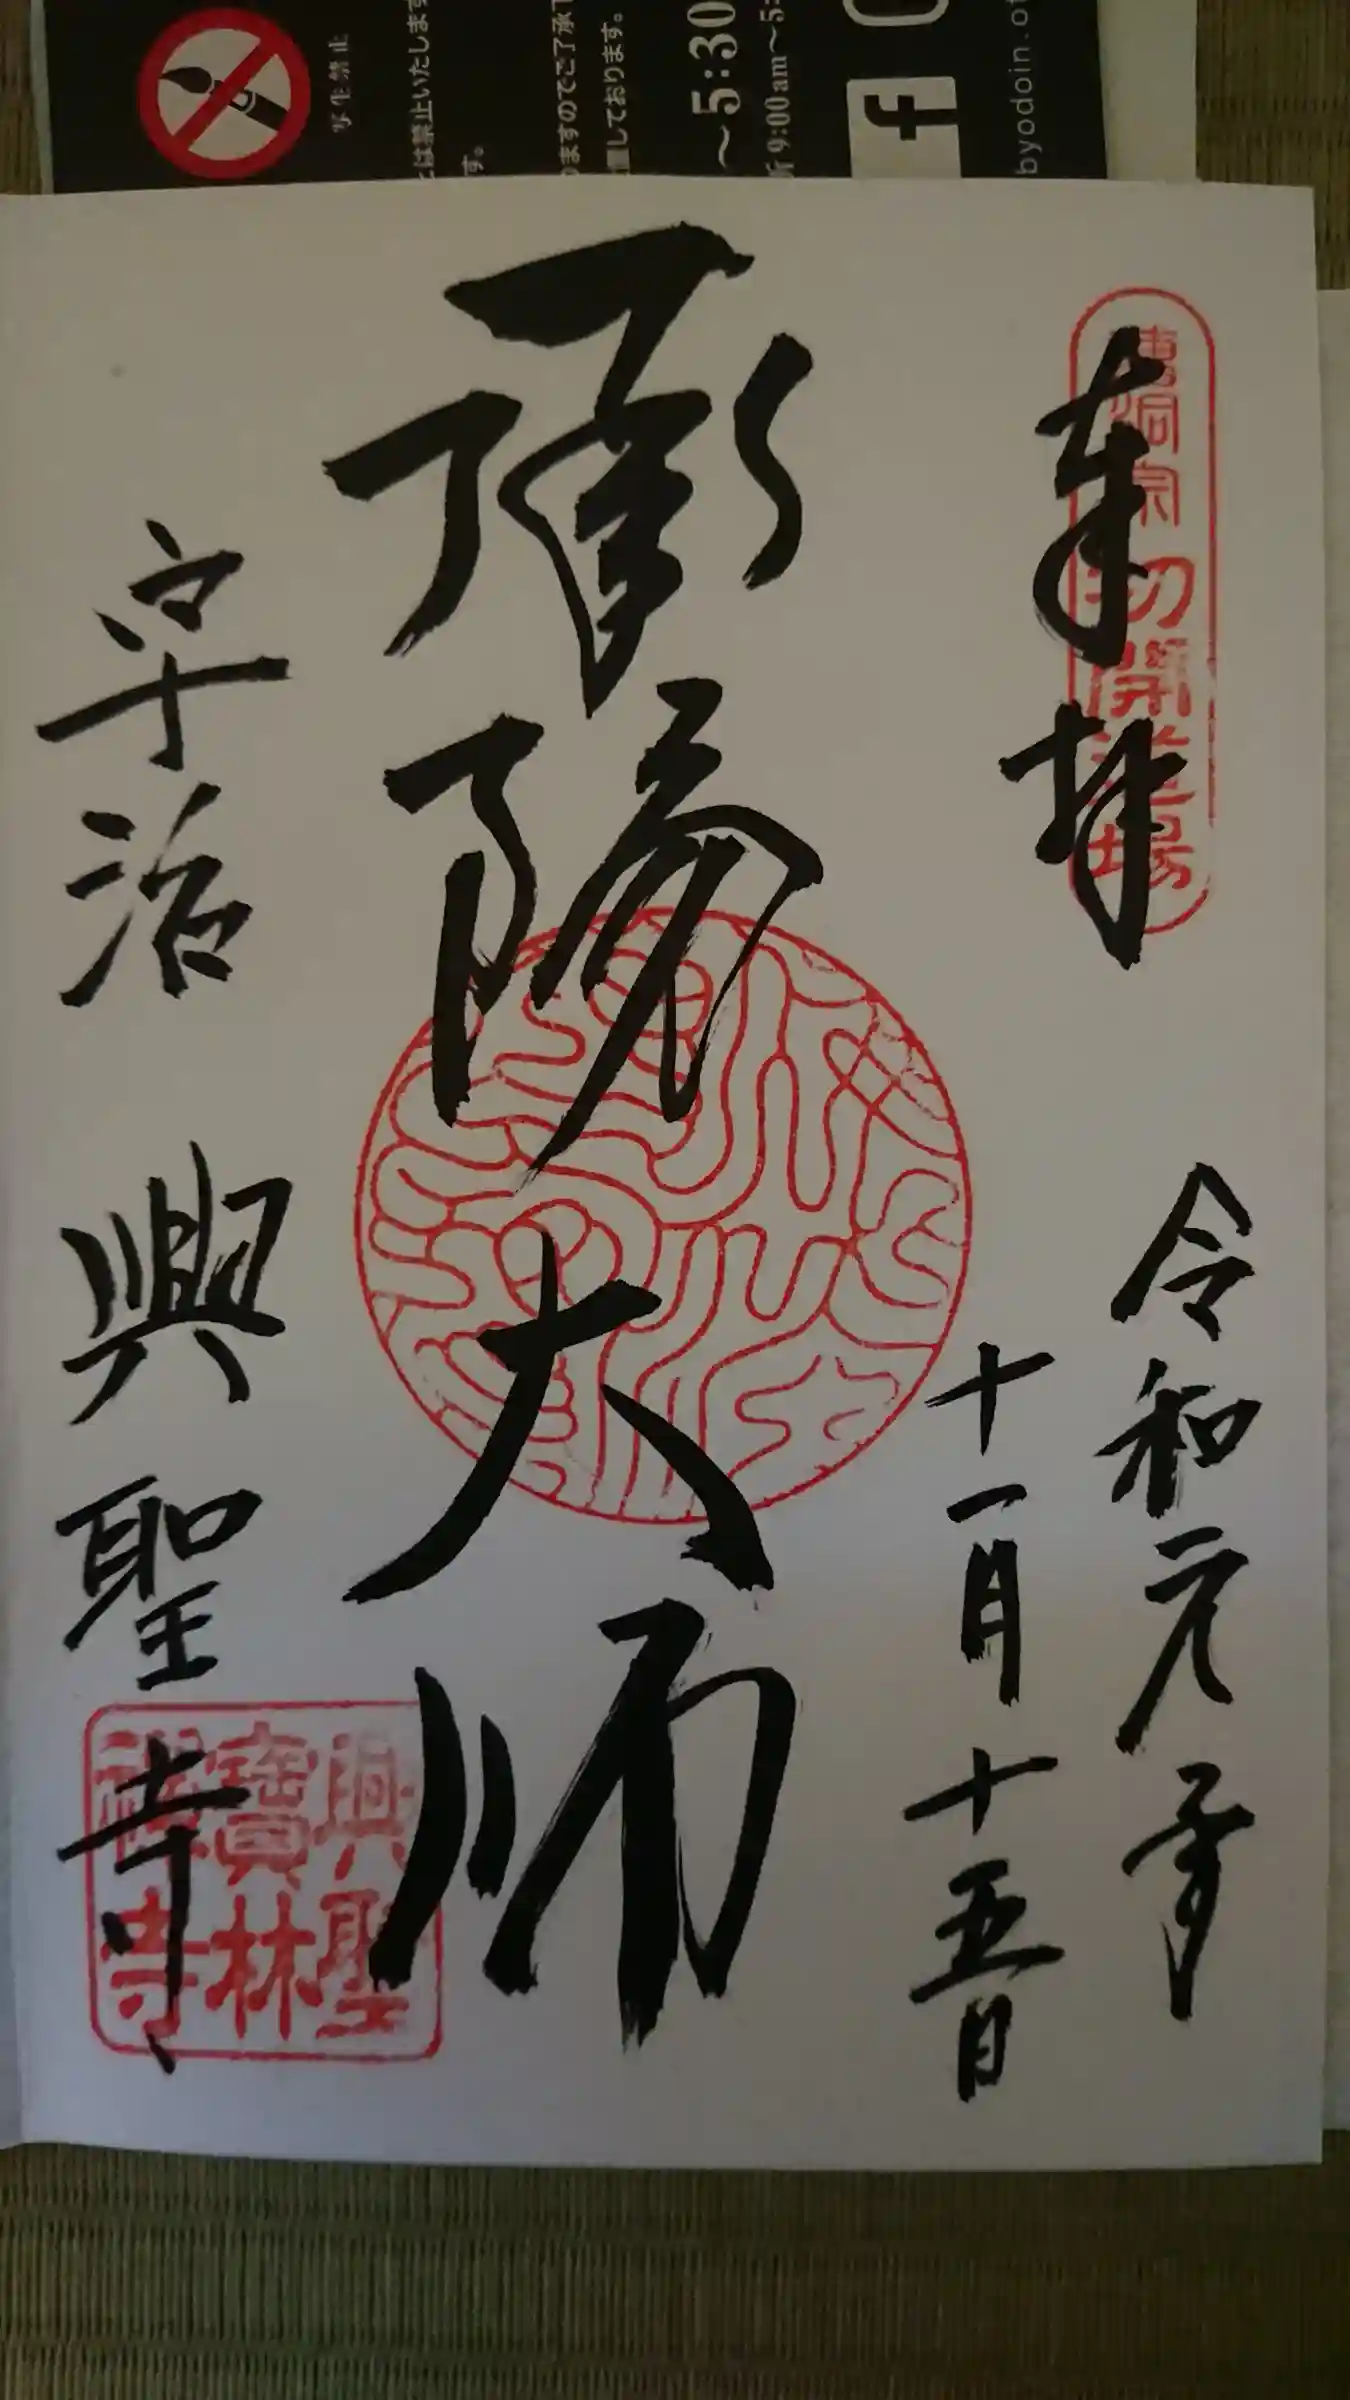 奉拝
曹洞宗初開道場
令和元年
十一月十五日
承陽大師
宇治 興聖寺
興聖
寶林
禅寺
写生禁止
とは禁止いたします
す。
ますのでご了承
しております。
～5:30
所 9:00am～5:
f
byodoin.or